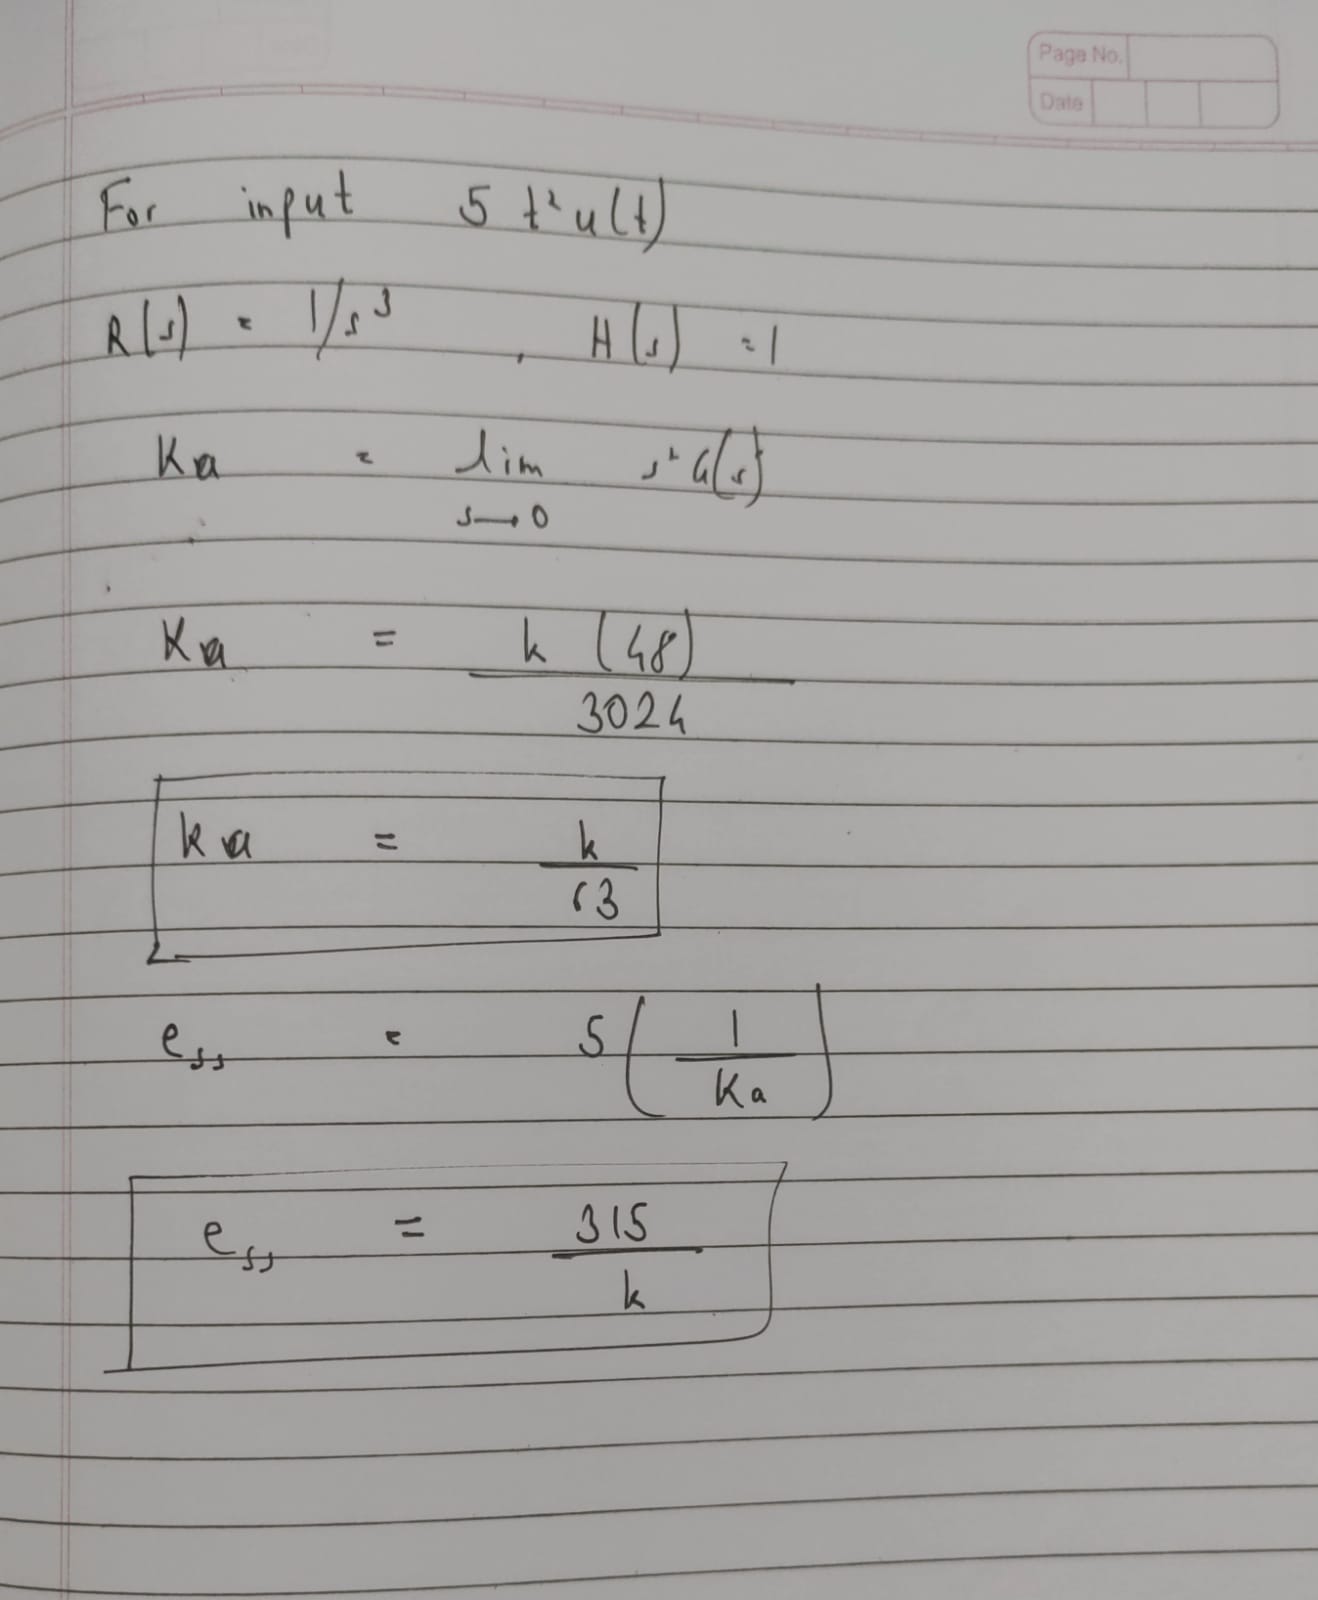 Page No.
Date
For input 5 t² u(t)
R(s) = 1/s³ , H(s) = 1
Ka = lim s² G(s)
s→0
Ka = k (48)
3024
ka = k
63
ess = 5 ( 1
Ka )
ess = 315
k